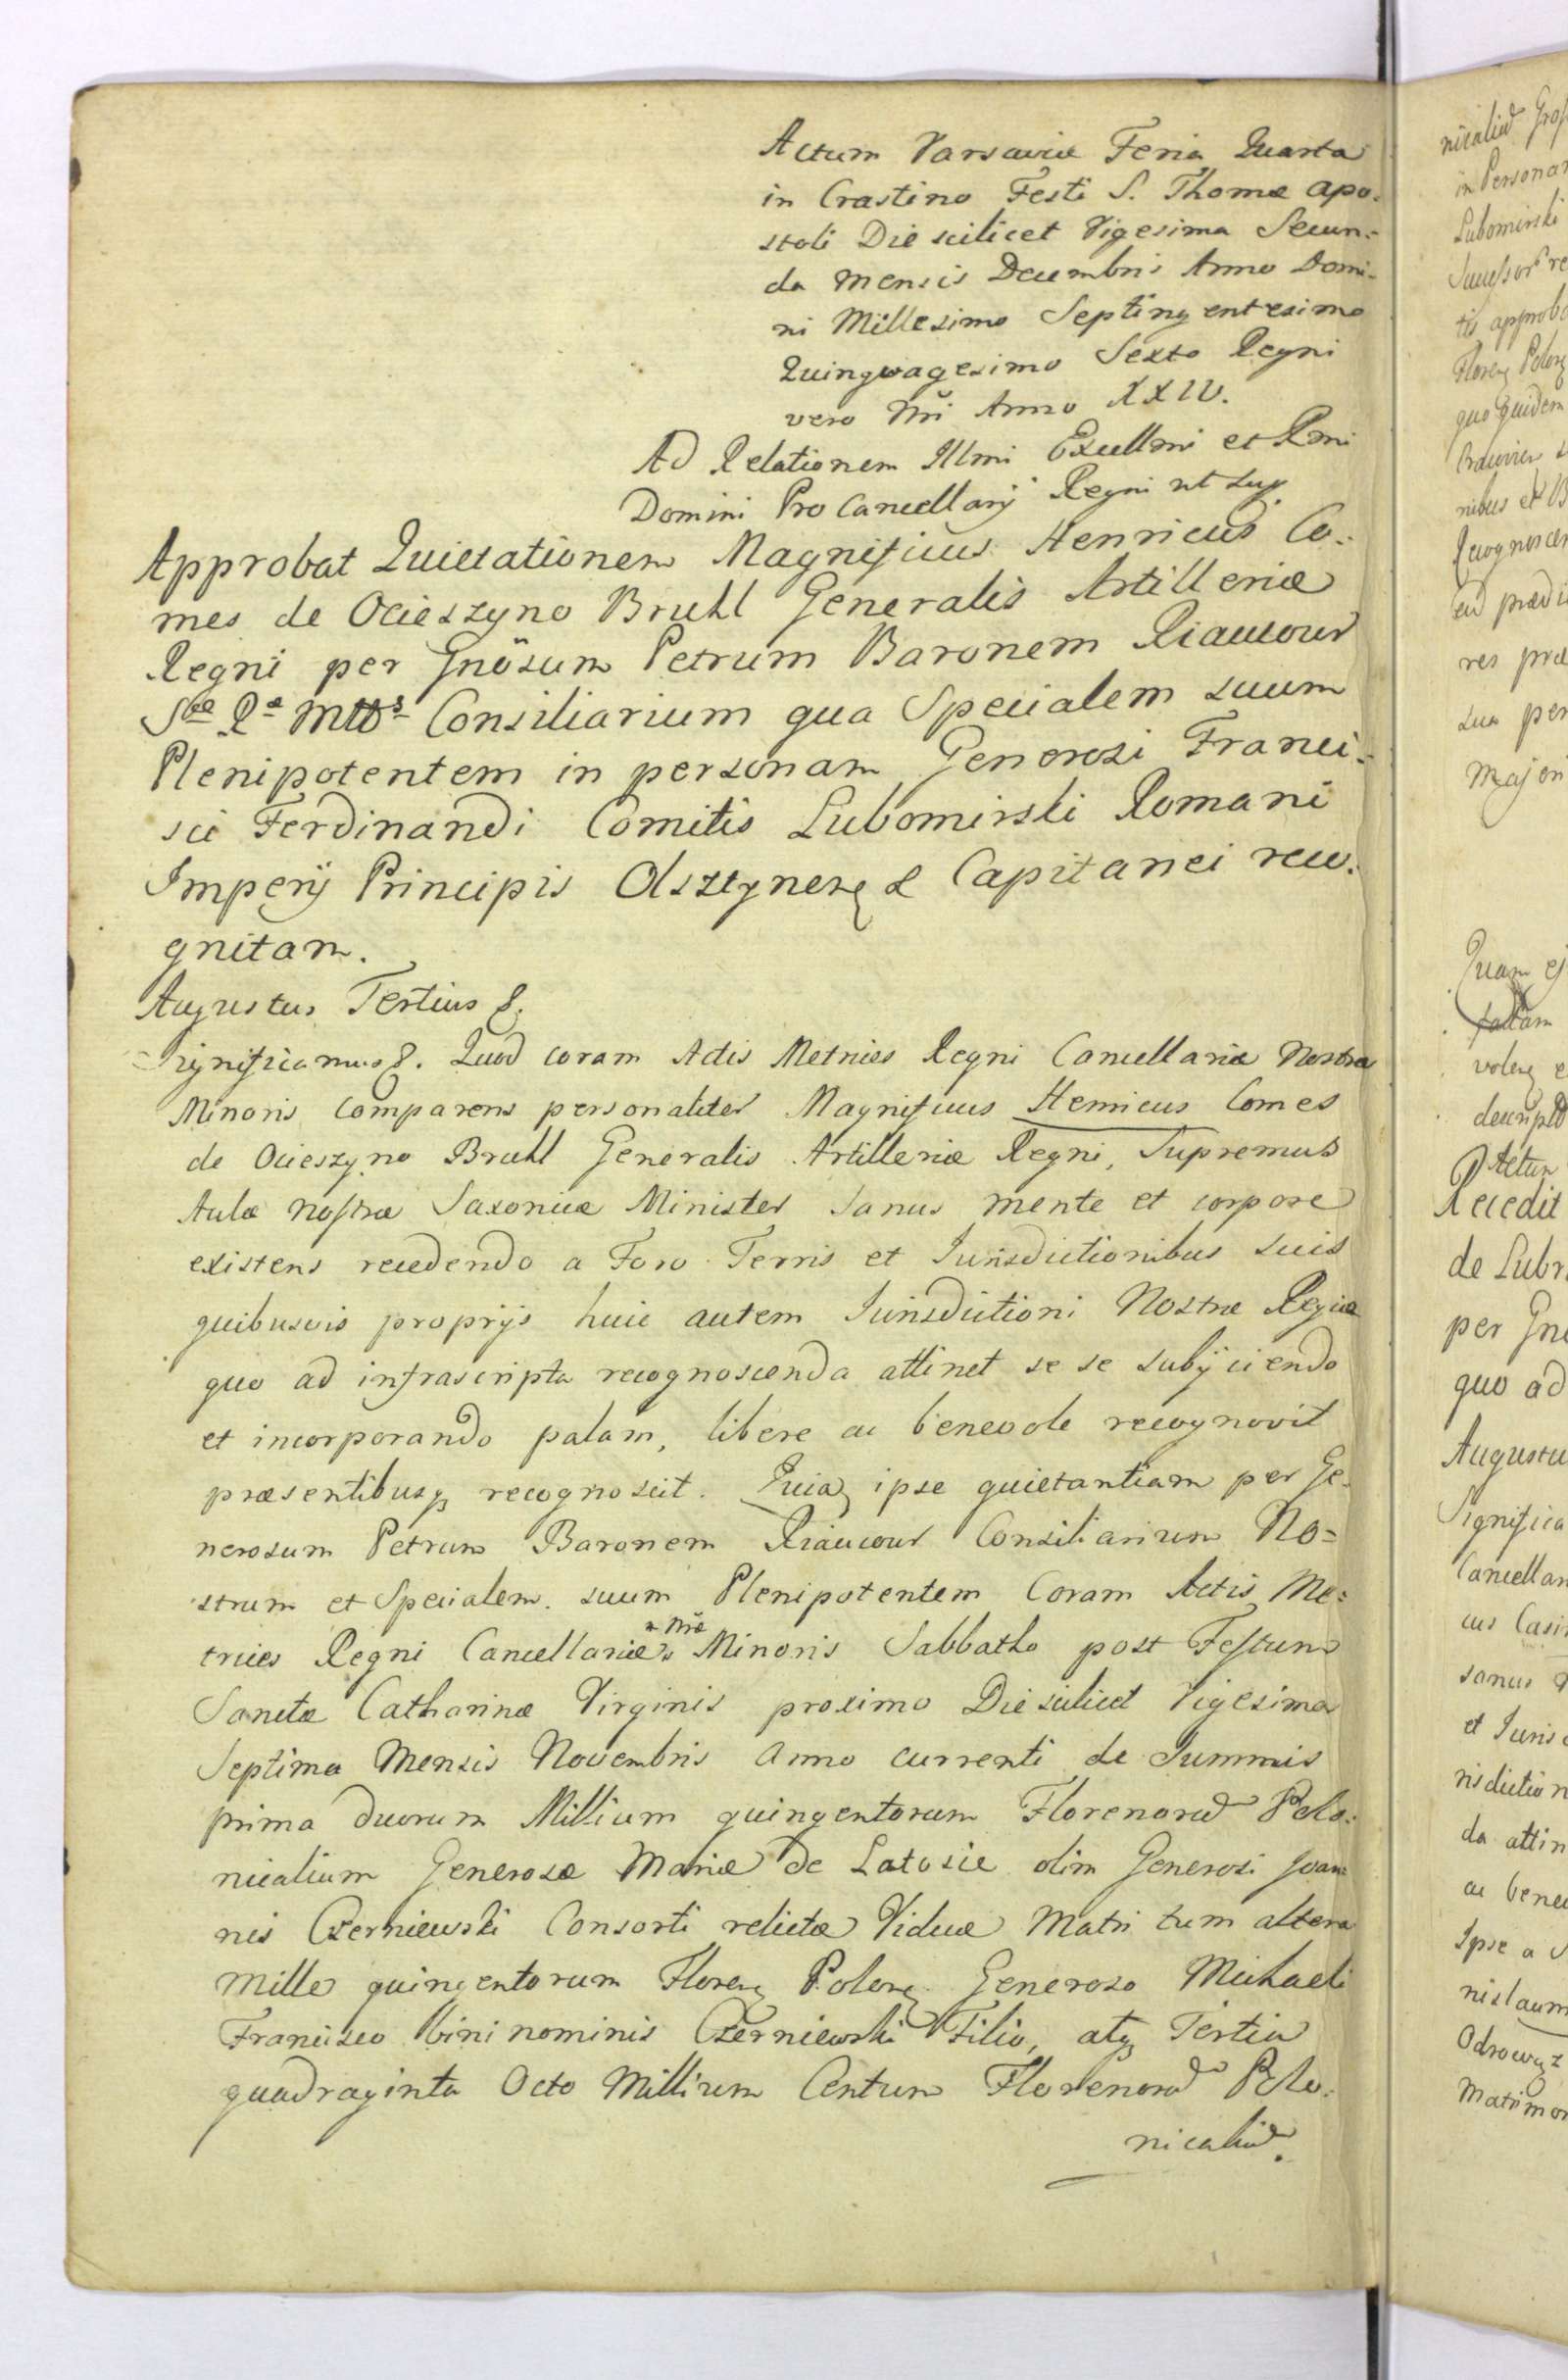 Actum Varsaviæ Feria Quarta
in Crastino Festi S. Thomæ Apo-
stoli Die scilicet Vigesima Secun-
da Mensis Decembris Anno Domi-
ni Millesimo Septingentesimo
Quinqvagesimo Sexto Regni
vero Nri Anno XXIV.
Ad Relationem Illmi Excellmi et Rmi
Domini Pro Cancellarij Regni ut sup.
Approbat Quietationem Magnificus Henricus Co-
mes de Ocieszyno Bruhl Generalis Artilleriæ
Regni per Gnosum Petrum Baronem Riaucour
Sæ Ræ Mttis Consiliarium qua Specialem suum
Plenipotentem in personam Generosi Franci-
sci Ferdinandi Comitis Lubomirski Romani
Imperij Principis Olsztynen & Capitanei reco-
gnitam.
Augustus Tertius &.
Significamus &. Quod coram Actis Metrices Regni Cancellariæ Nostræ
Minoris comparens personaliter Magnificus Henricus Comes
de Ocieszyno Bruhl Generalis Artilleriæ Regni, Supremus
Aulæ nostræ Saxonicæ Minister sanus mente et corpore
existens recedendo a Foro Terris et Iurisdictionibus suis
quibusvis proprijs huic autem Iurisdictioni Nostræ Regiæ
quo ad infrascripta recognoscenda attinet se se subijciendo
et incorporando palam, libere ac benevole recognovit
præsentibusq recognoscit. Quia ipse quietantiam per Ge-
nerosum Petrum Baronem Riaucour Consiliarium No=
strum et Specialem suum Plenipotentem Coram Actis Me=
trices Regni Cancellariæ Nræ Minoris Sabbatho post Festum
Sanctæ Catharinæ Virginis proximo Die scilicet Vigesima
Septima Mensis Novembris Anno currenti de Summis
prima duorum Millium quingentorum Florenorum Polo-
nicalium Generosæ Mariæ de Latosie olim Generosi Joan-
nis Czerniewski Consorti relictæ Viduæ Matri tum altera
Mille quingentorum Floren Polon Generoso Michaeli
Francisco bini nominis Czerniewski Filio, atq Tertia
quadraginta Octo Millium Centum Florenorum Polo-
nicalium.
nicalium
in Personam
Lubomirski
tis approba
Floren Polon
quo quidem
res præ
sua per
Majori
Quam ej
voleng
Actum
Recedit
de Lubr
per Gn
quo ad
Augustu
Significa
Cancellar
cus Casi
sanus
et Iuris
risdiction
da attin
ac bene
Ipse a
nislaum
Odrowąż
Matrimon